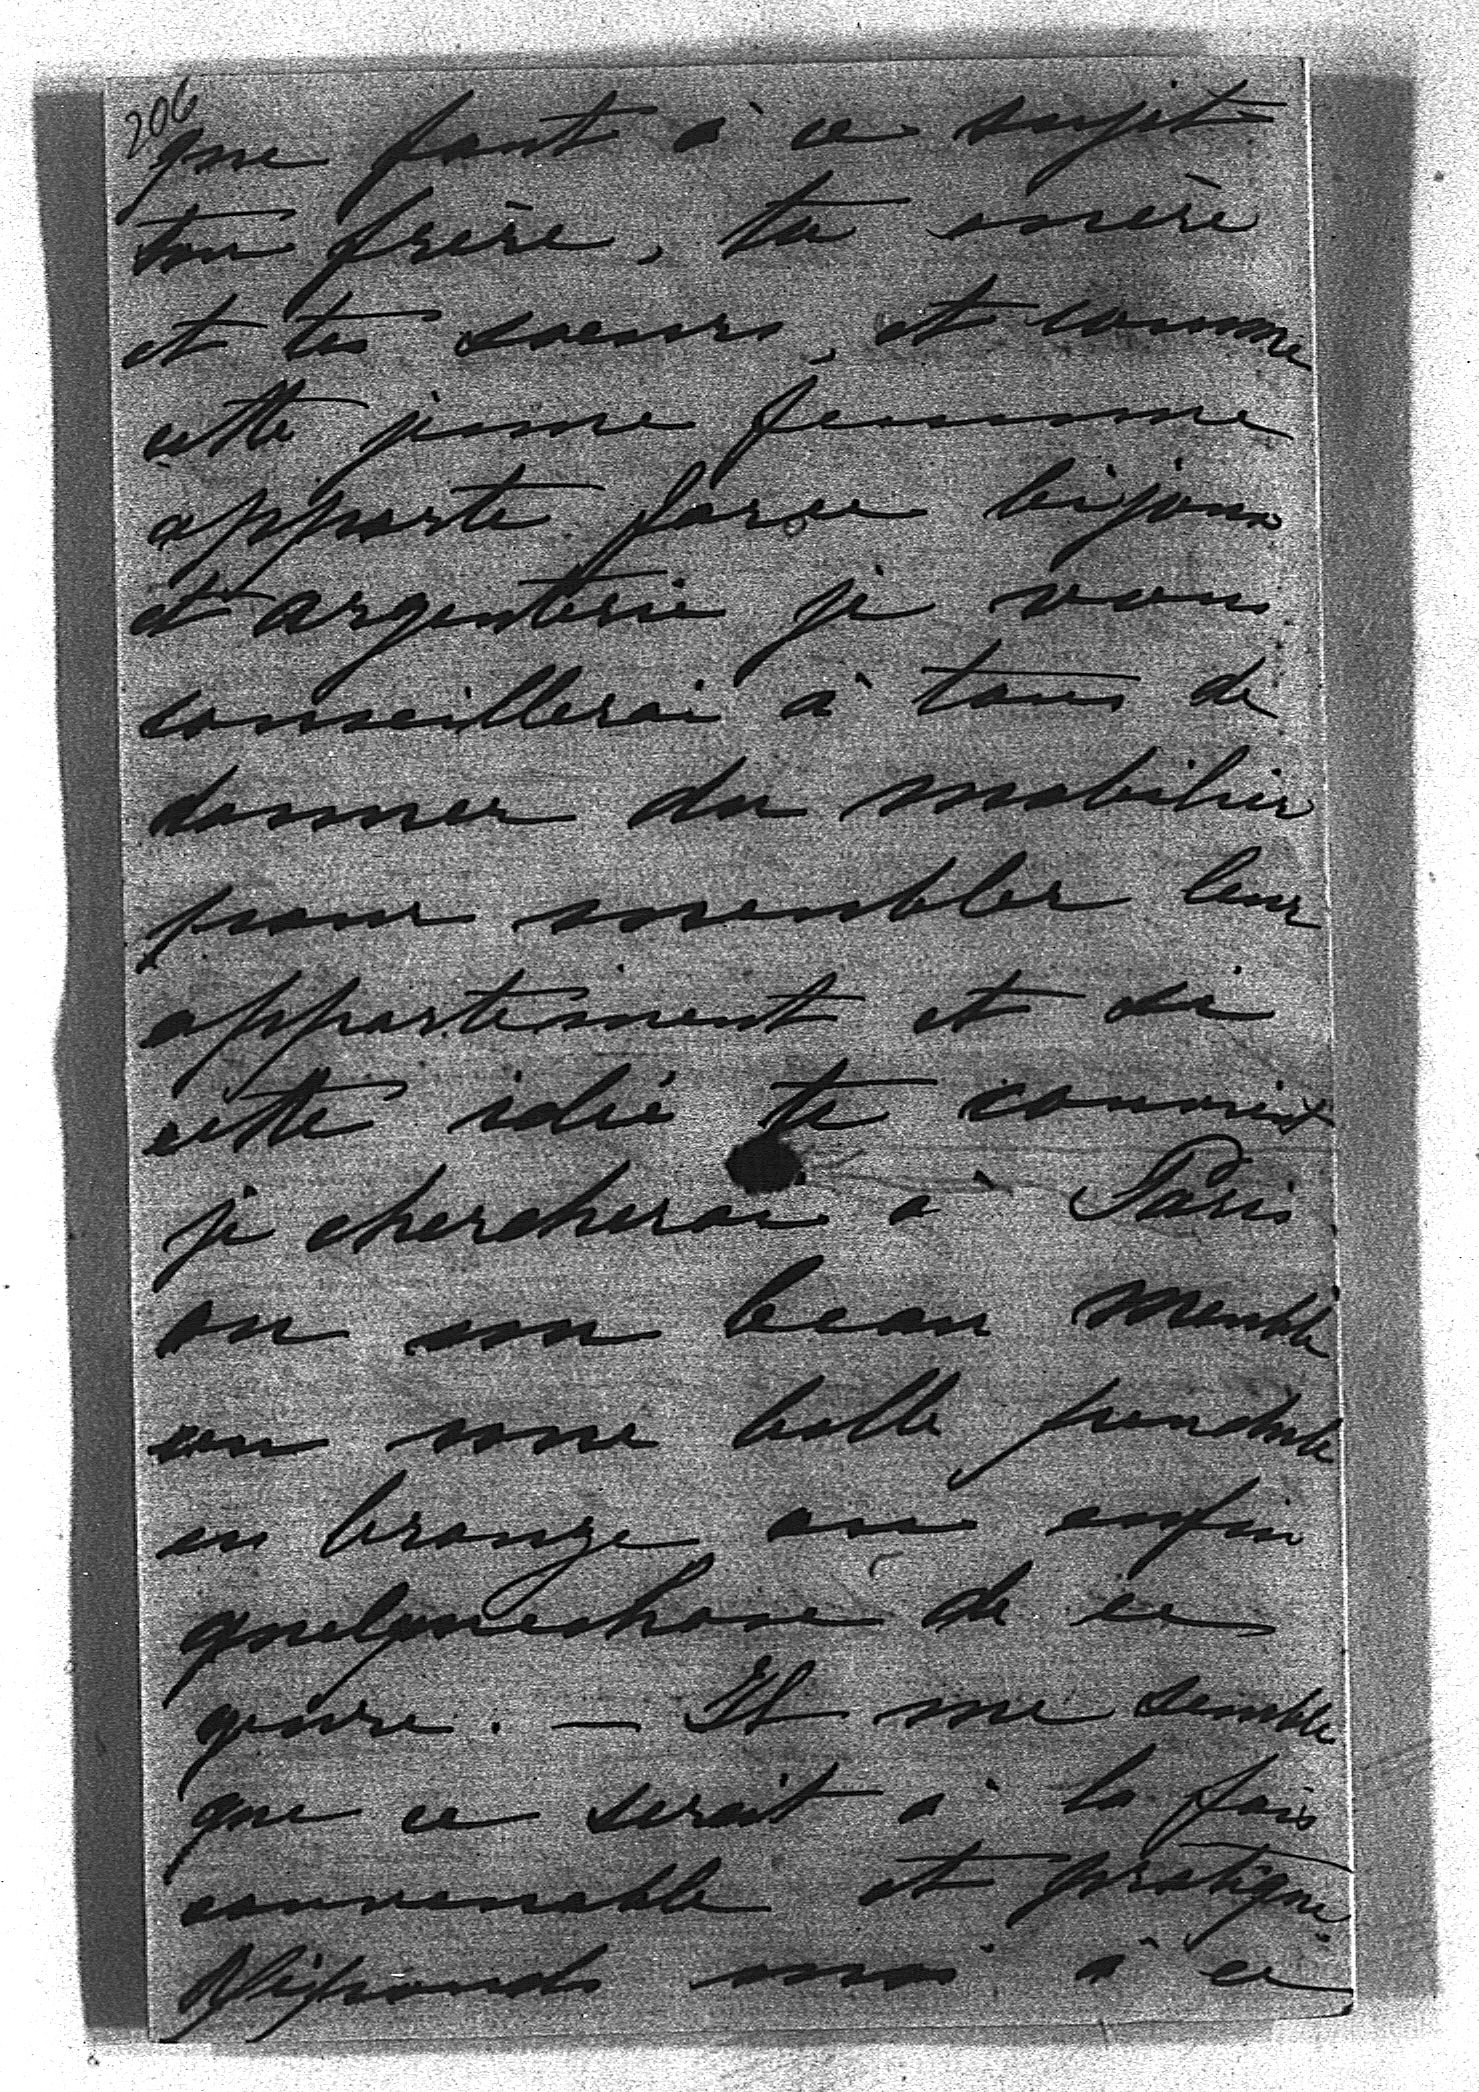 206
que font à ce sujet
ton frère, ta mère
et tes soeurs, et comme
cette jeune femme
apporte force bijoux
et argenterie je vous
conseillerai à tous de
donner du mobilier
pour meubler leur
appartement et si
cette idée te convient
je chercherai à Paris
ou un beau meuble
ou une belle pendule
en bronze ou enfin
quelquechose de ce
genre. — Il me semble
que ce serait à la fois
convenable et pratique.
Réponds moi à ce